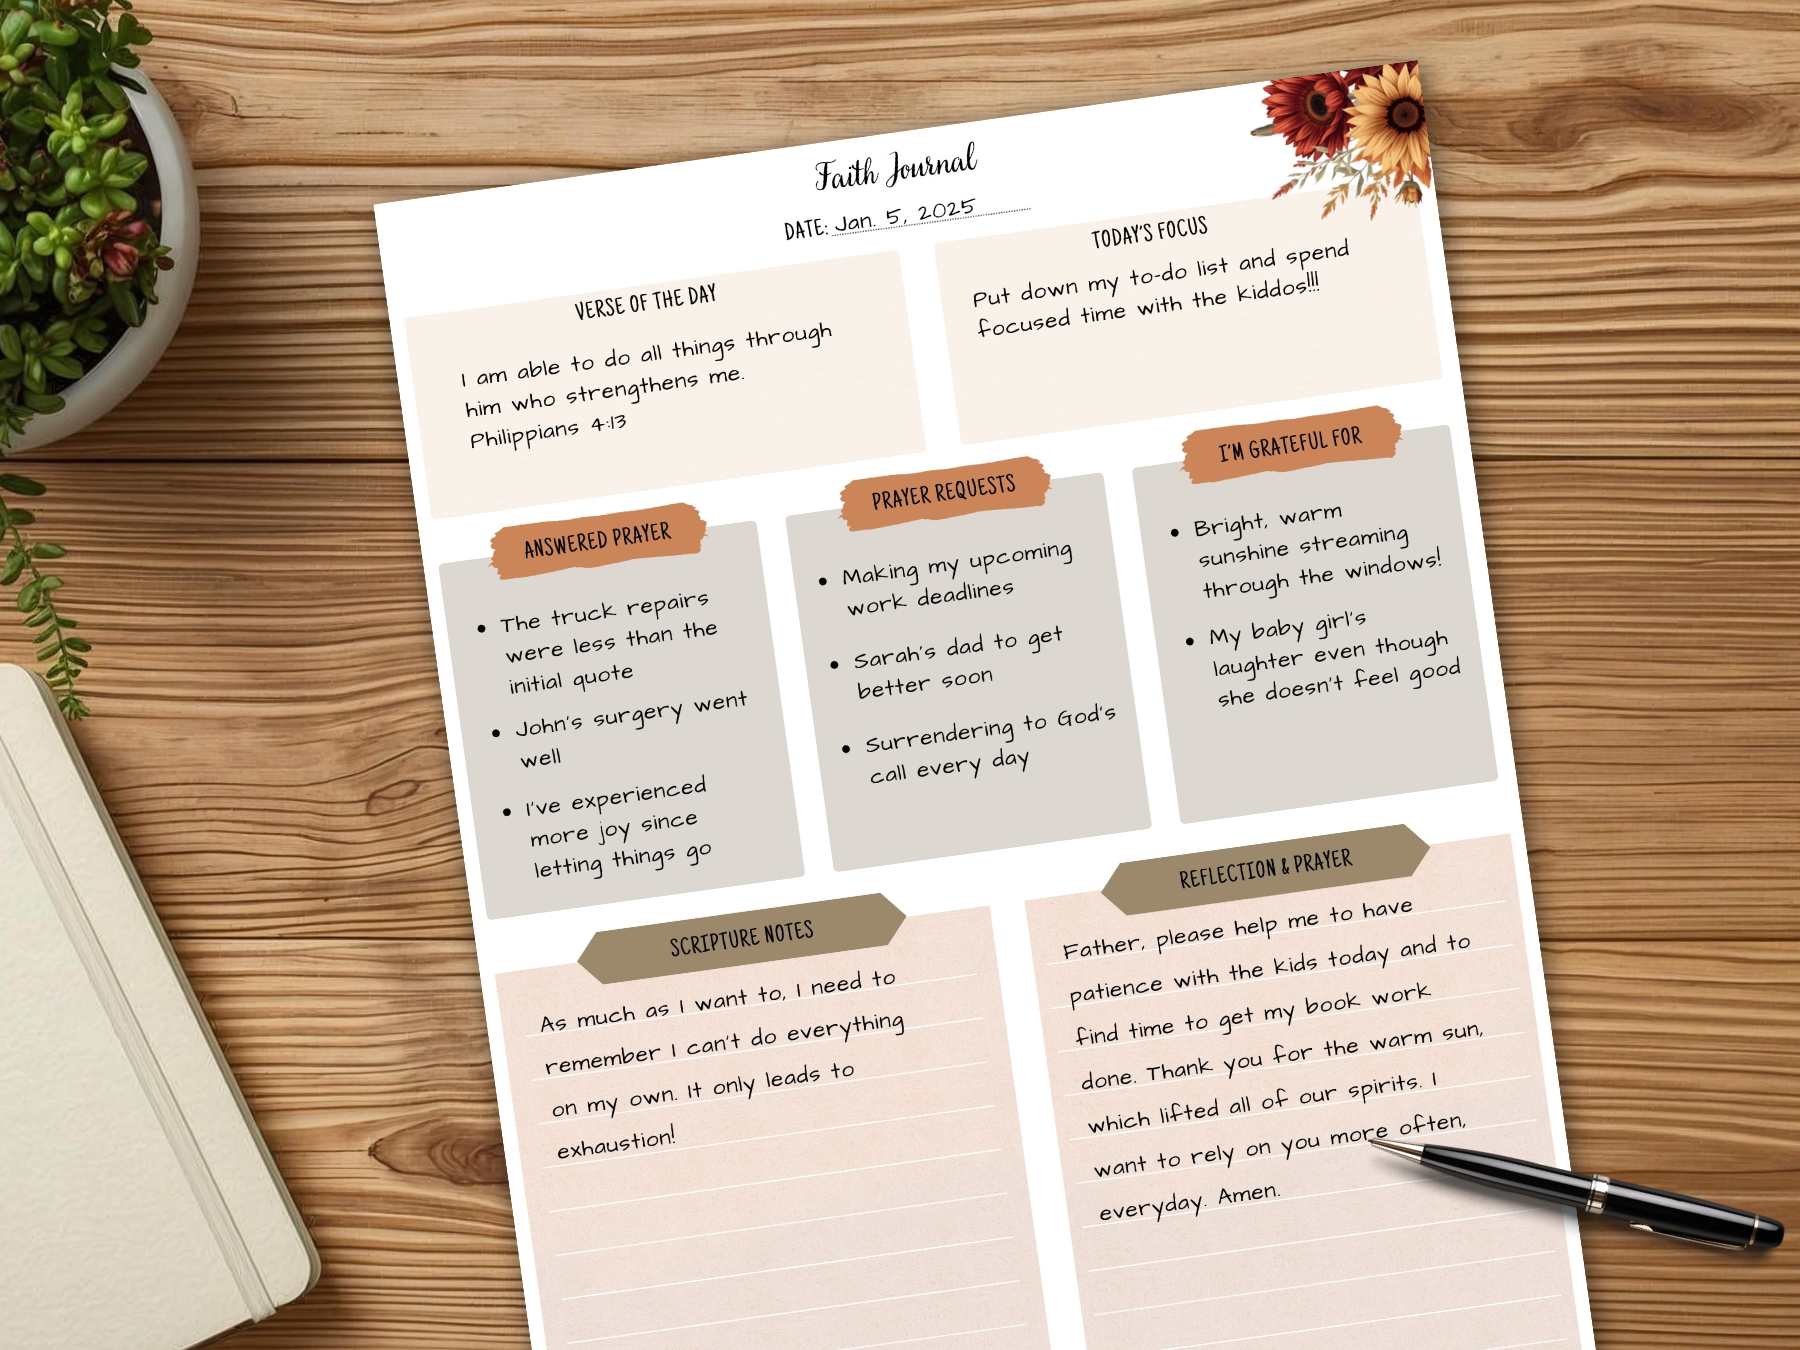 Faith Journal
DATE: Jan. 5, 2025
VERSE OF THE DAY
I am able to do all things through
him who strengthens me.
Philippians 4:13
TODAY'S FOCUS
Put down my to-do list and spend
focused time with the kiddos!!!
ANSWERED PRAYER
• The truck repairs
were less than the
initial quote
• John's surgery went
well
• I've experienced
more joy since
letting things go
PRAYER REQUESTS
• Making my upcoming
work deadlines
• Sarah's dad to get
better soon
• Surrendering to God's
call every day
I'M GRATEFUL FOR
• Bright, warm
sunshine streaming
through the windows!
• My baby girl's
laughter even though
she doesn't feel good
SCRIPTURE NOTES
As much as I want to, I need to
remember I can't do everything
on my own. It only leads to
exhaustion!
REFLECTION & PRAYER
Father, please help me to have
patience with the kids today and to
find time to get my book work
done. Thank you for the warm sun,
which lifted all of our spirits. I
want to rely on you more often,
everyday. Amen.